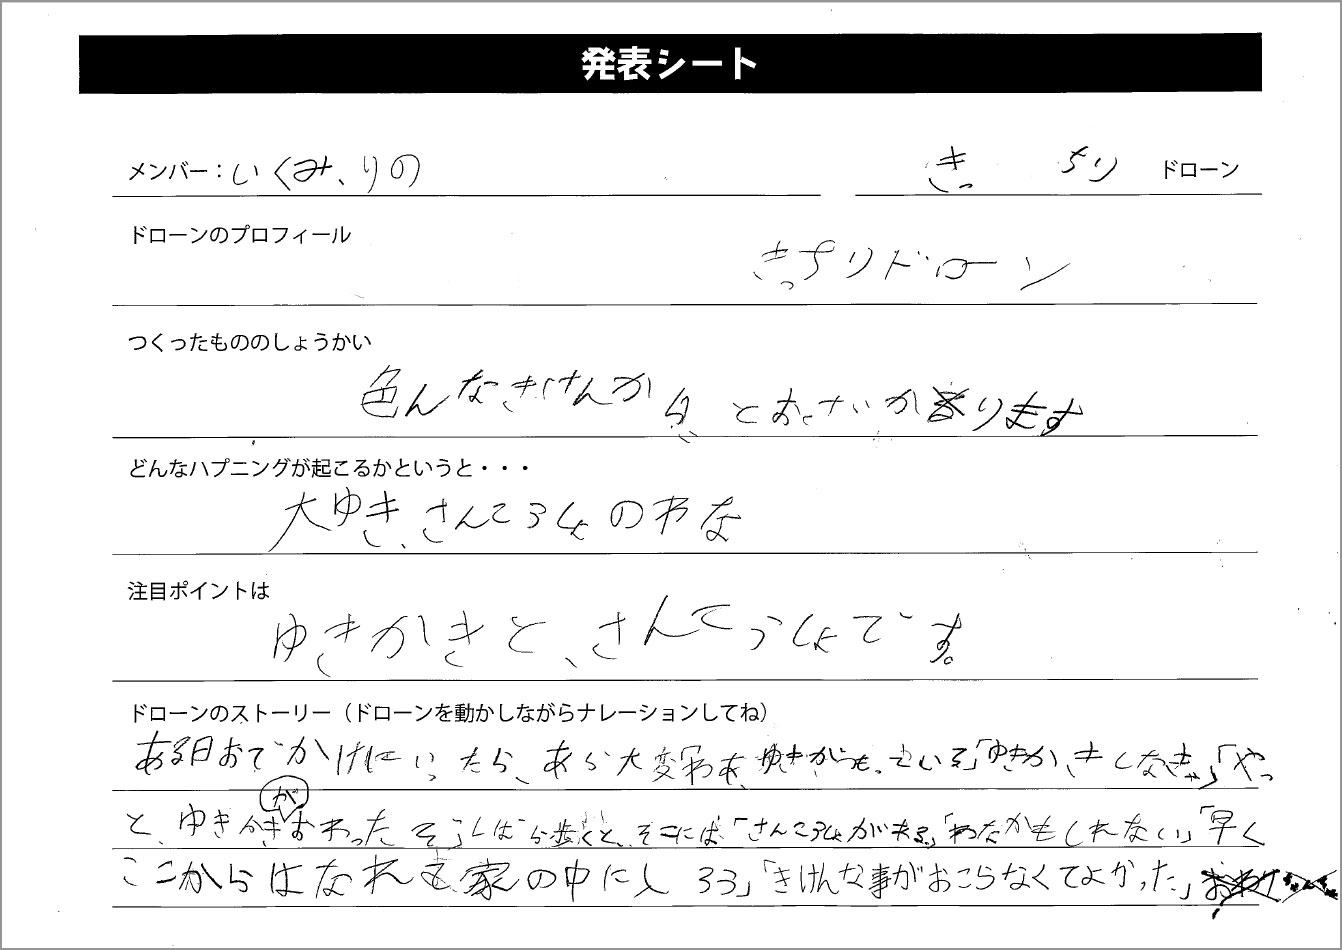 発表シート
メンバー：いくみ、りの きっちりドローン
ドローンのプロフィール
きっちりドローン
つくったもののしょうかい
色んなきけんから とおざかります
どんなハプニングが起こるかというと・・・
大ゆき、さんころ4のわな
注目ポイントは
ゆきかきと、さんてぅしょです。
ドローンのストーリー（ドローンを動かしながらナレーションしてね）
ある日おでかけにいったら、あら大変 ゆきが 「ゆきかきしなきゃ」「やっ
と、ゆきかきがおわった そぅしばら歩くと、そこには「さんころ4が来る」「わなかもしれない」「早く
ここからはなれて家の中に」「きけんな事がおこらなくてよかった」